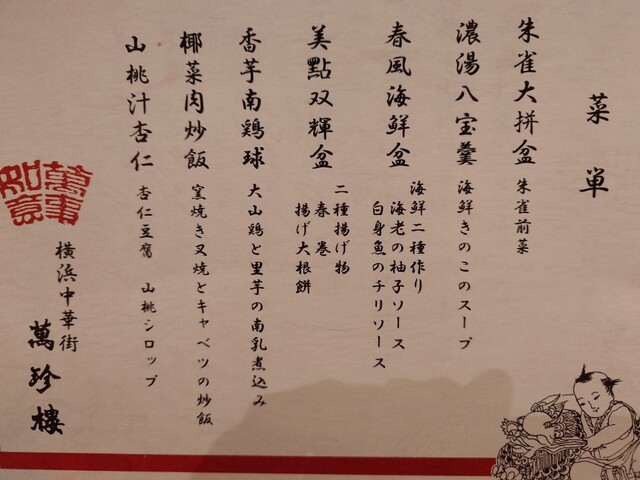 菜単
朱雀大拼盆 朱雀前菜
濃湯八宝羹 海鮮きのこのスープ
春風海鮮盆
海鮮二種作り
海老の柚子ソース
白身魚のチリソース
美點双輝盆
二種揚げ物
春巻
揚げ大根餅
香芋南鶏球 大山鶏と里芋の南乳煮込み
椰菜肉炒飯 窯焼き叉焼とキャベツの炒飯
山桃汁杏仁 杏仁豆腐 山桃シロップ
萬事
如意
横浜中華街
萬珍樓